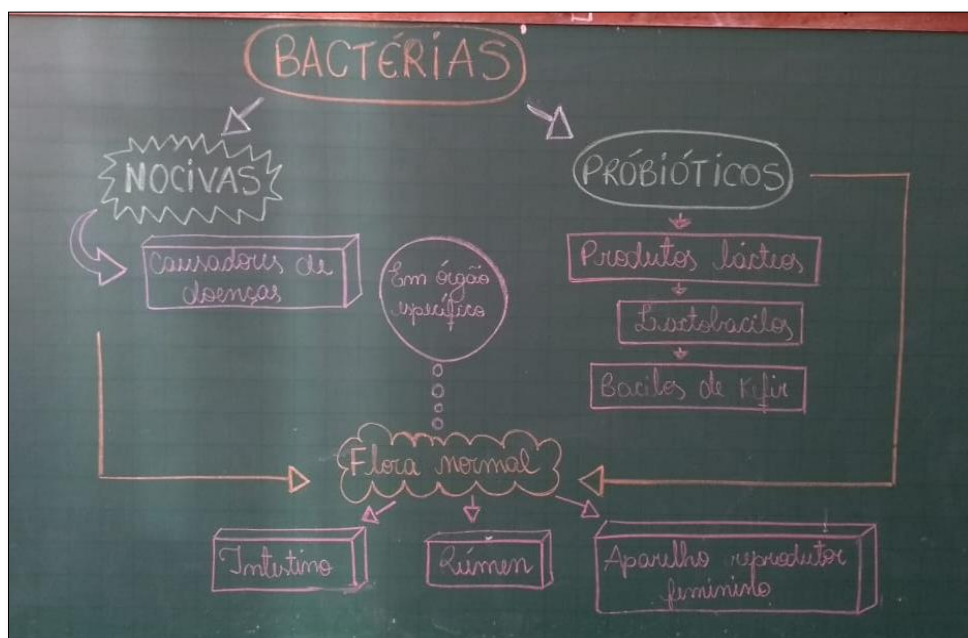 BACTÉRIAS
NOCIVAS
PRÓBIÓTICOS
causadores de
doenças
Em órgão
específico
Produtos lácteos
Lactobacilos
Bacilos de Kefir
Flora normal
Intestino
Rúmen
Aparelho reprodutor
feminino